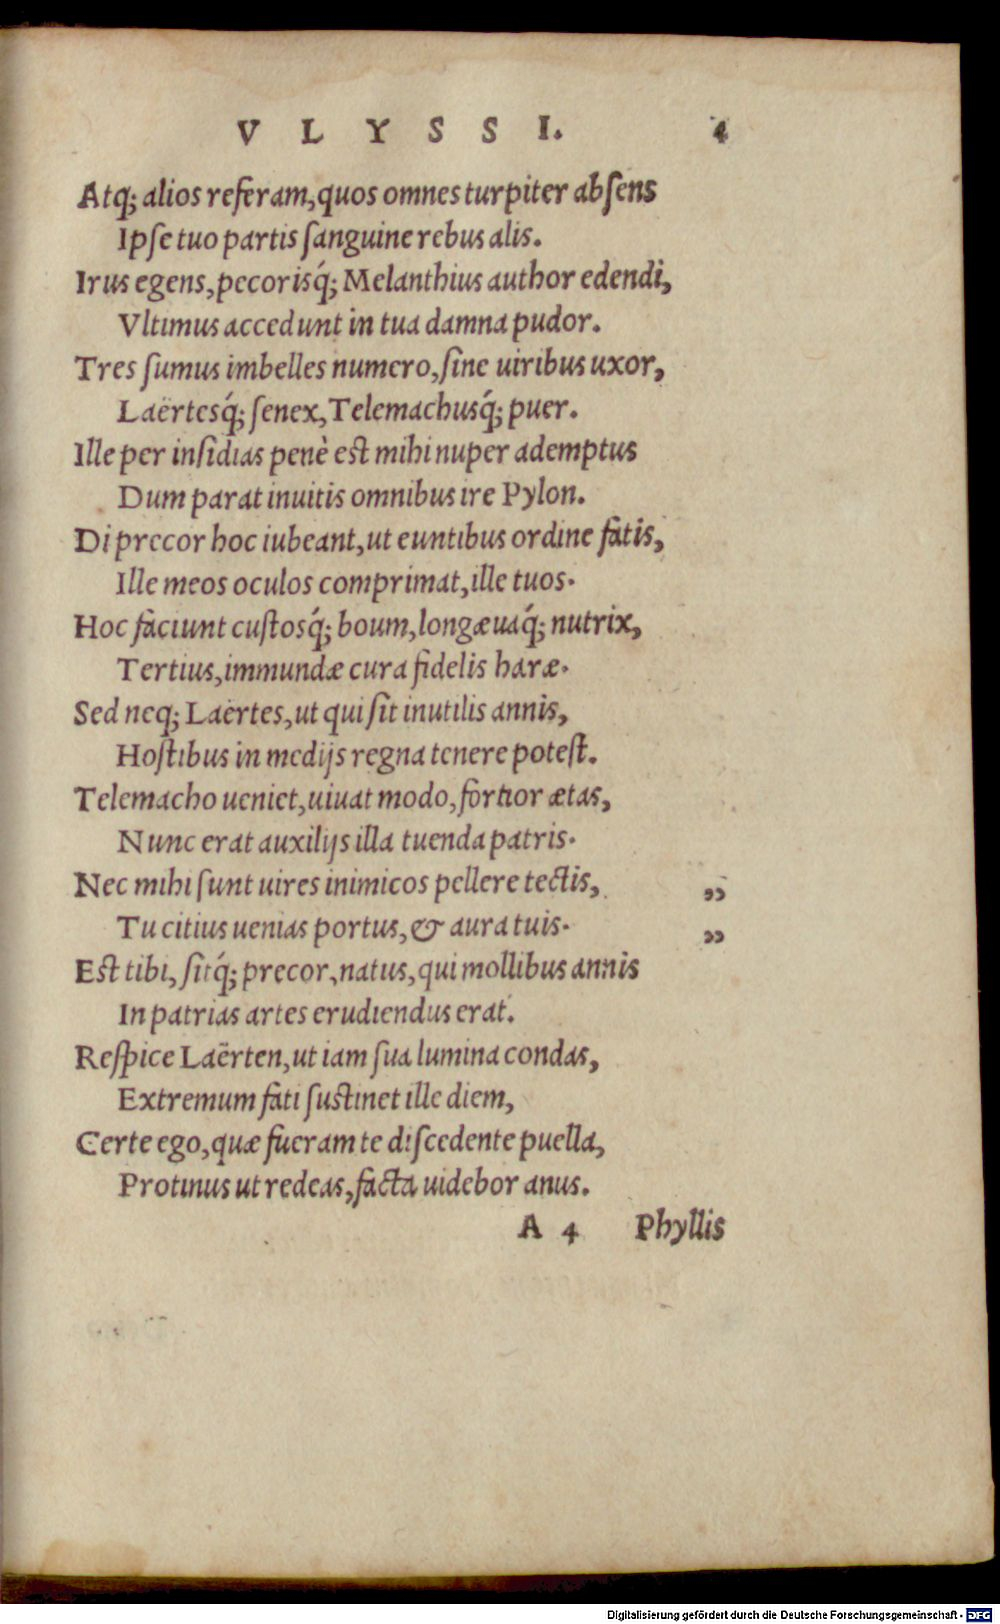 VLYSSI. 4
Atq; alios referam, quos omnes turpiter absens
Ipse tuo partis sanguine rebus alis.
Irus egens, pecorisq́; Melanthius author edendi,
Vltimus accedunt in tua damna pudor.
Tres sumus imbelles numero, sine uiribus uxor,
Laërtesq́; senex, Telemachusq́; puer.
Ille per insidias penè est mihi nuper ademptus
Dum parat inuitis omnibus ire Pylon.
Di precor hoc iubeant, ut euntibus ordine fatis,
Ille meos oculos comprimat, ille tuos.
Hoc faciunt custosq́; boum, longæuaq́; nutrix,
Tertius, immundæ cura fidelis haræ.
Sed neq; Laërtes, ut qui sit inutilis annis,
Hostibus in medijs regna tenere potest.
Telemacho ueniet, uiuat modo, fortior ætas,
Nunc erat auxilijs illa tuenda patris.
Nec mihi sunt uires inimicos pellere tectis, ,,
Tu citius uenias portus, & aura tuis. ,,
Est tibi, sitq́; precor, natus, qui mollibus annis
In patrias artes erudiendus erat.
Respice Laërten, ut iam sua lumina condas,
Extremum fati sustinet ille diem,
Certe ego, quæ fueram te discedente puella,
Protinus ut redeas, facta uidebor anus.
A 4 Phyllis
Digitalisierung gefördert durch die Deutsche Forschungsgemeinschaft - DFG